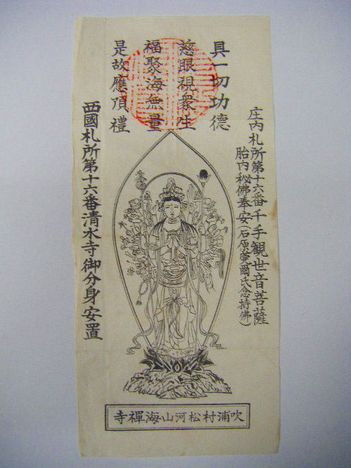 具一切功德
慈眼視衆生
福聚海無量
是故應頂禮
庄内札所第十六番千手観世音菩薩
胎内秘佛奉安(石原莞爾氏念持佛)
西國札所第十六番清水寺御分身安置
吹浦村松河山海禪寺